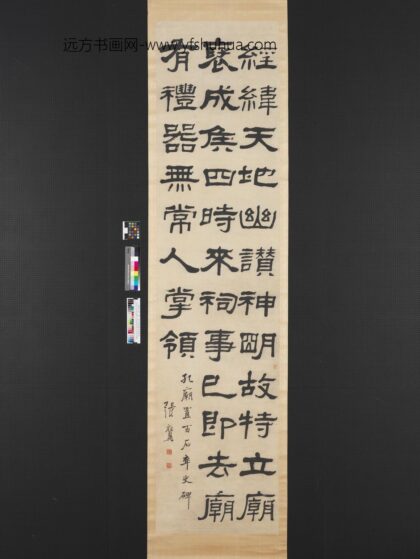 远方书画网-www.yfshuhua.com
經緯天地幽讃神明故特立廟
褒成侯四時來祠事已即去廟
有禮器無常人掌領
孔廟置百石卒史碑